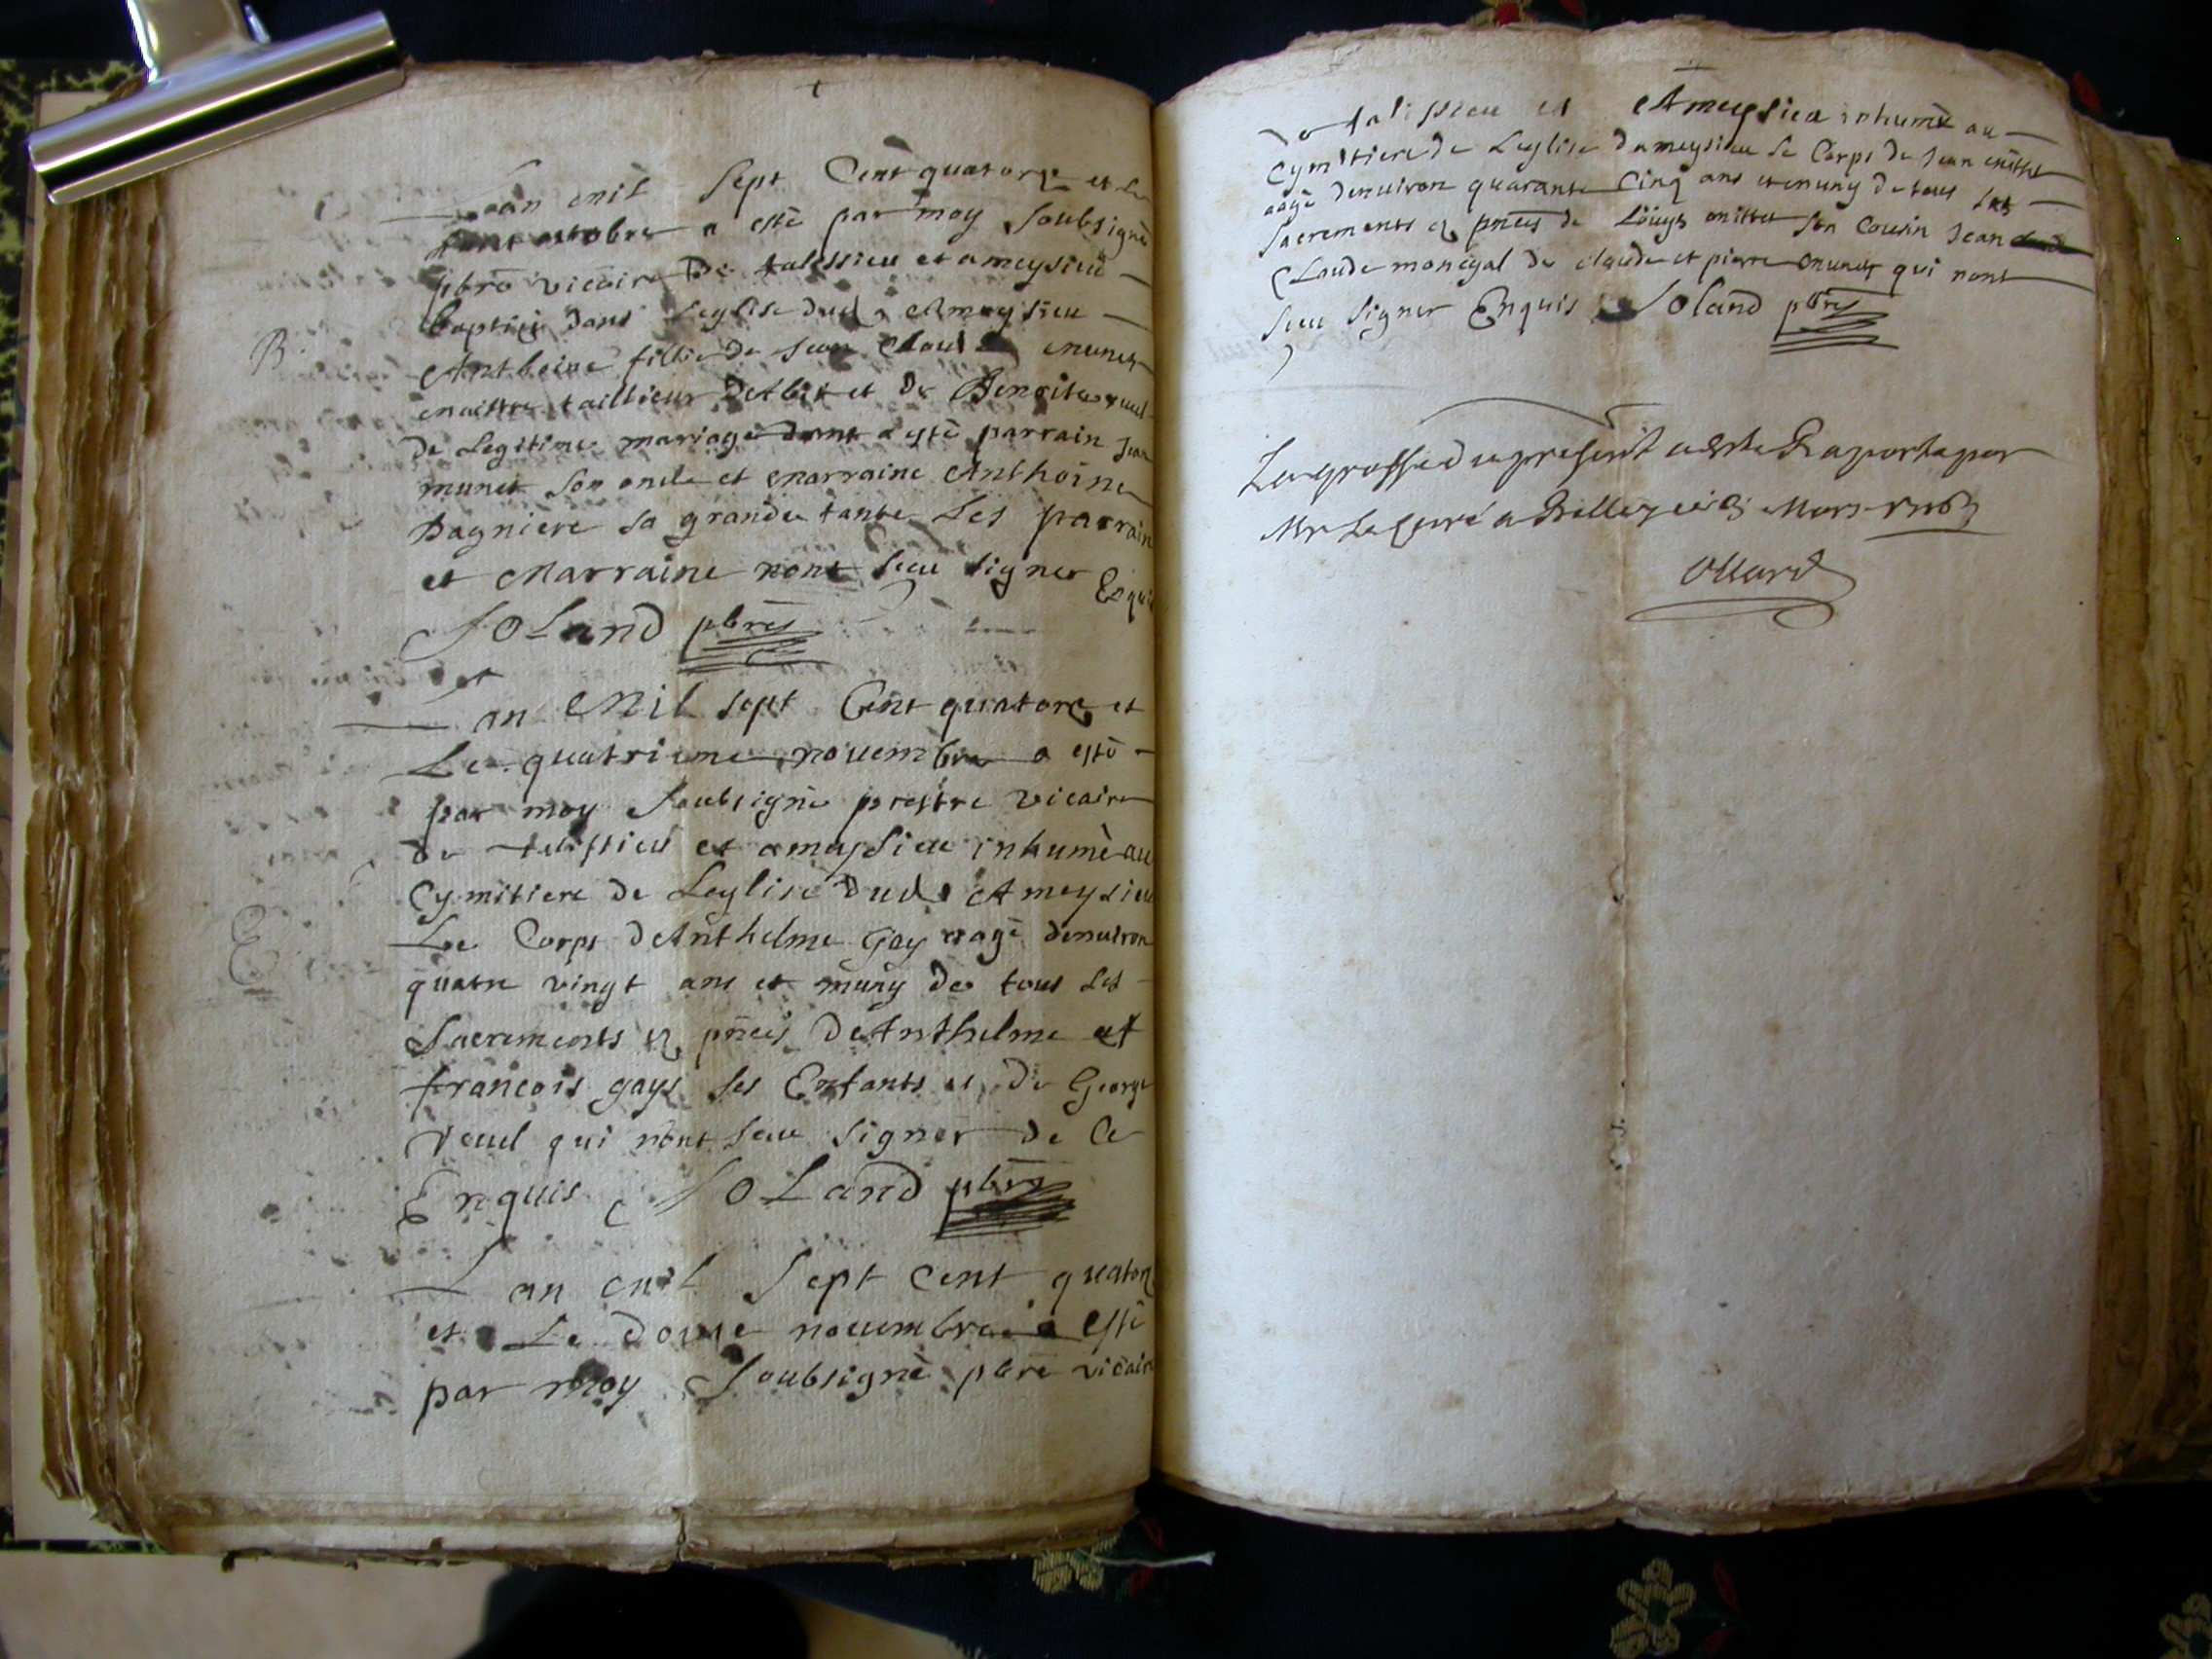 Lan mil Sept Cent quatorze et Le
octobre a esté par moy Soubsigné
pbre vicaire De talissieu et ameysieu
baptisé dans Leglise dud. Ameysieu
B.
Antheine fillie de Jean Claude munet
maittre taillieur dAbit et De Benoite
De Legitime mariage dont a esté parrain Jean
munet son oncle et marraine Anthoine
Bagniere sa grande tante Les parrain
et Marraine nont Sceu signer Enquis
SOLand pbre
Lan Mil sept Cent quatorze et
Le quatrieme nouembre a esté
par moy Soubsigné prestre vicaire
de talissieu et ameysieu inhumé au
Cymitiere de Leglise Dud. Ameysieu
E
Le Corps dAnthelme Gay aagé denuiron
quatre vingt ans et muny de tous Les
Sacrements en pnces dAnthelme et
francois gays ses Enfants et De George
qui nont sceu signer de Ce
Enquis SOLand pbre
Lan mil Sept Cent quatorze
et Le douze nouembre a esté
par moy Soubsigné pbre vicaire
De talissieu et Ameysieu inhumé au
Cymitiere de Leglise dameysieu Le Corps de Jean
aagé denuiron quarante Cinq ans et muny de tous Les
Sacrements en pnces de Louys son Cousin Jean
CLaude monegal de claude et pierre munet qui nont
sceu signer Enquis SOland pbre
La grosse du present a este Raporte par
Mr Le Curé a Belley ce Mars